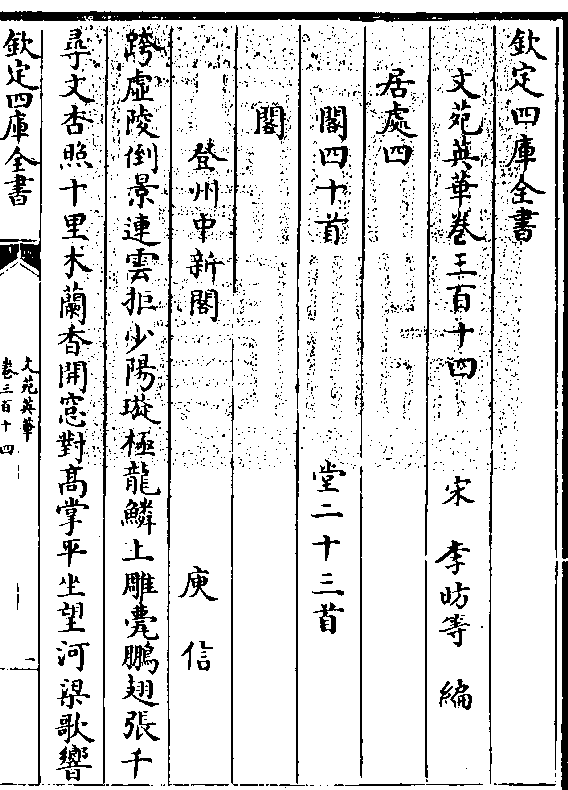 欽定四庫全書
文苑英華卷三百十四
宋 李昉等 編
居處四
閣四十首 堂二十三首
閣
登州中新閣 庾信
跨虛陵倒景連雲拒少陽璇極龍鱗上雕甍鵬翅張千
尋文杏照十里木蘭香開窓對髙掌平坐望河梁歌響
欽定四庫全書
文苑英華
卷三百十四
一